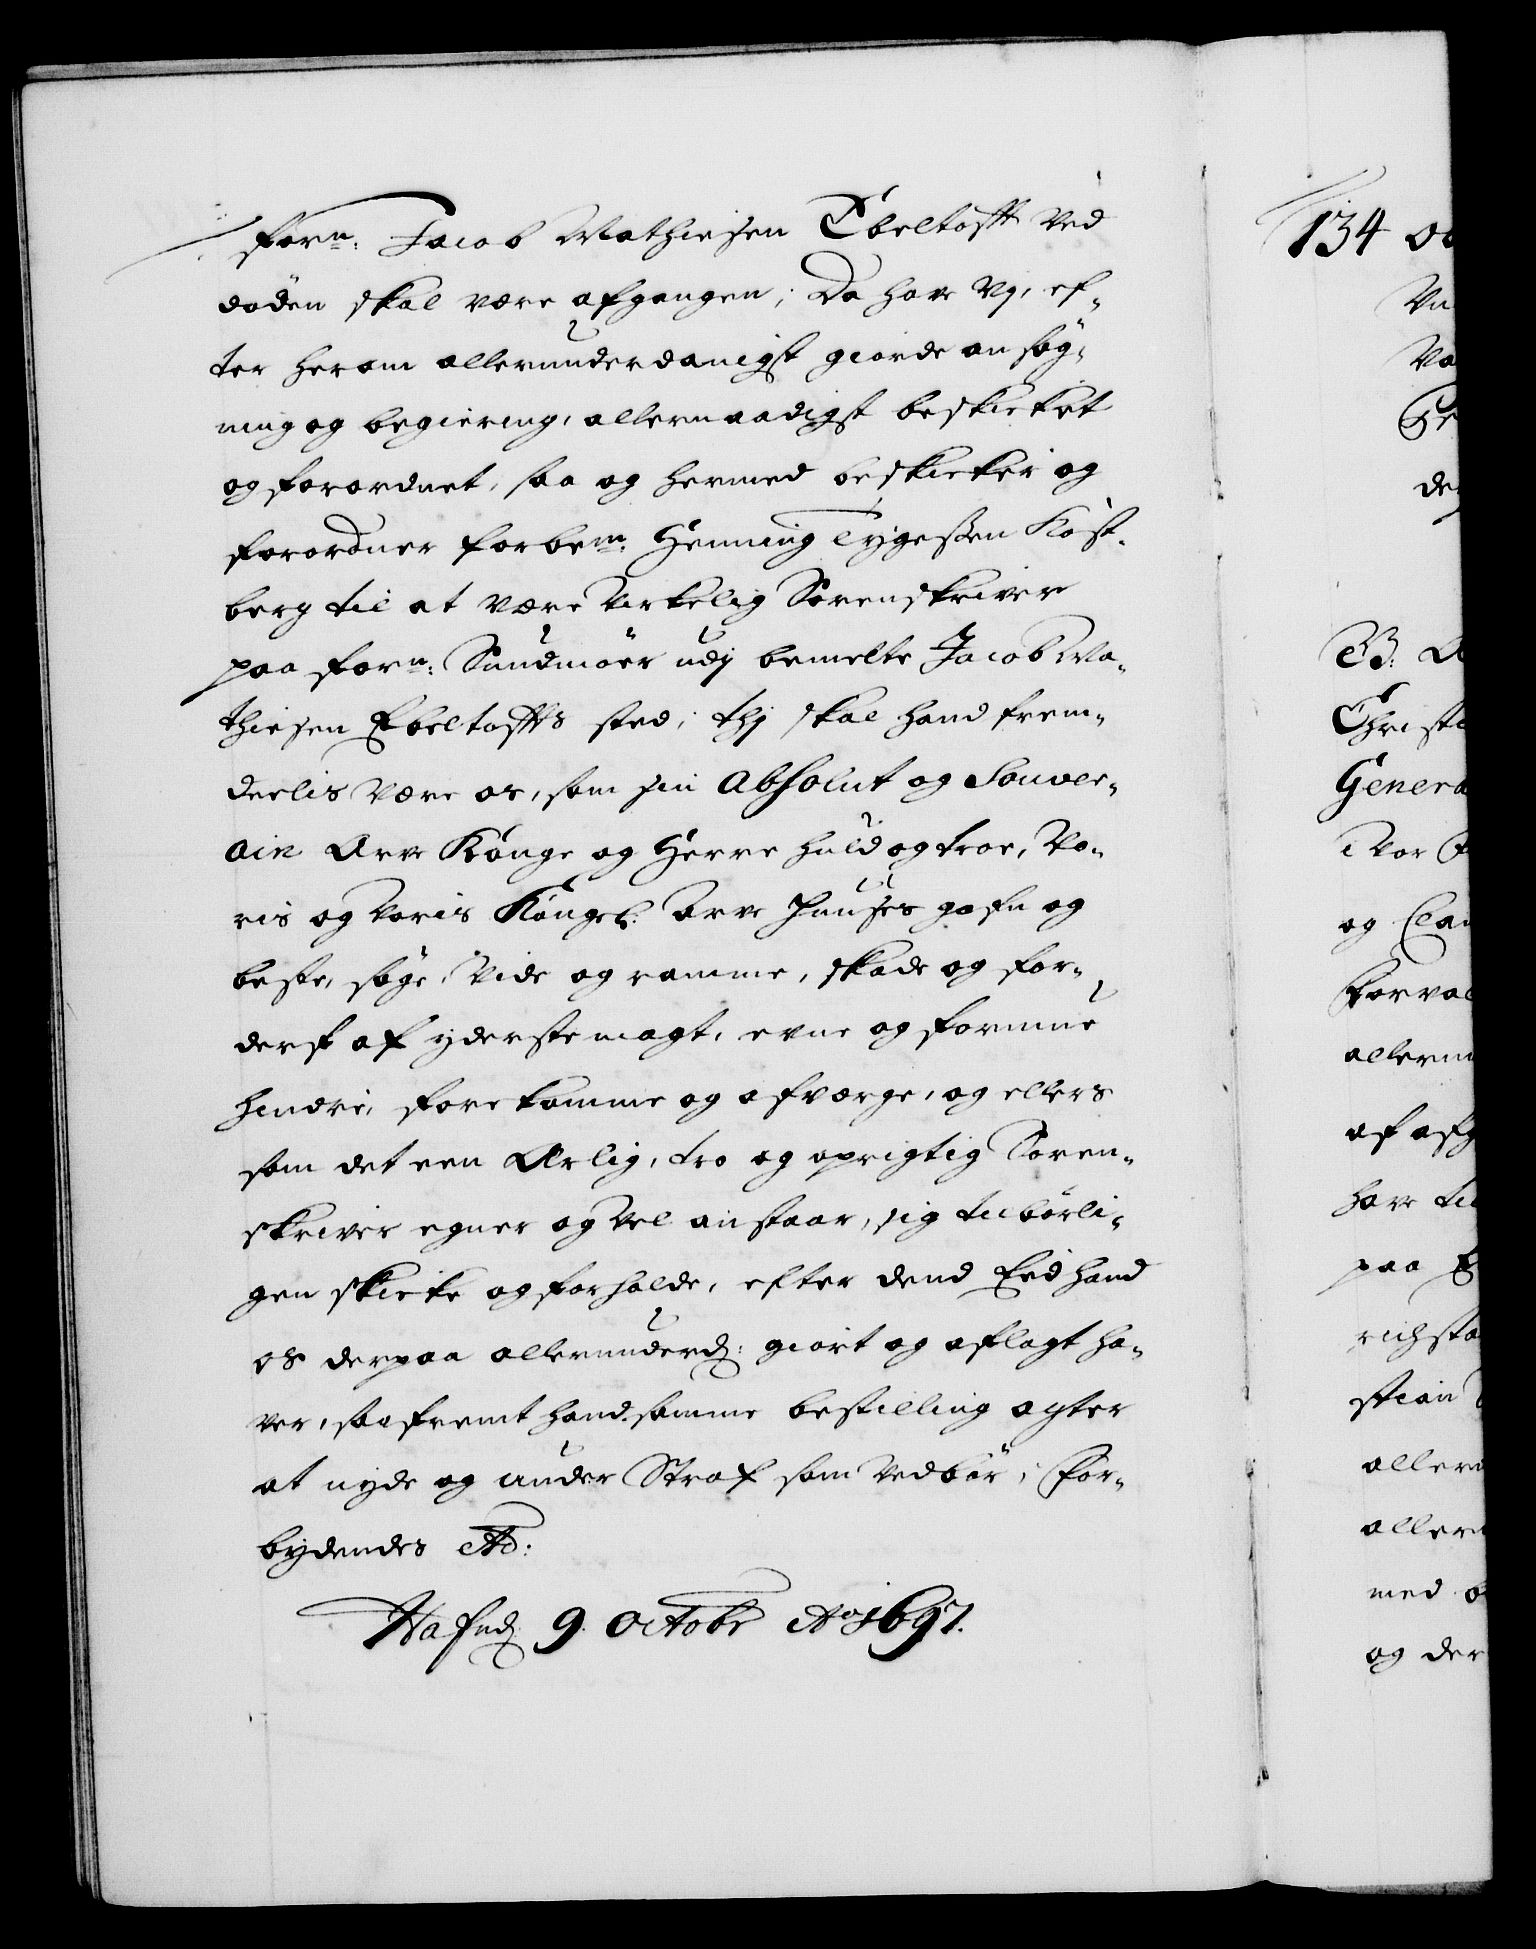 forn: Jacob Mathiesen Ebeltofft ved
døden skal være afgangen; Da have Vj, ef-
ter herom allerunderdanigst giorde ansøg-
ning og begiering, allernaadigst beskicket
og forordnet, saa og hermed beskicker og
forordner forbem: Henning Tygessen Kost-
berg til at være virkelig Sorenskriver
paa forn: Sundmöer udj bemelte Jacob Ma-
thiesen Ebeltoffts sted; thj skal hand frem-
deelis være os, som sin Absolut og Souver-
ain Arve Konge og Herre huld og troe, Vo-
ris og Voris Kongel: Arve Huuses gafn og
beste, søge, vide og ramme, skade og for-
derf af yderste magt, evne og formue
hindre, forekomme og afværge, og ellers
som det een Ærlig, tro og oprigtig Soren-
skriver egner og vel anstaar, sig tilbørli-
gen skicke og forholde, efter dend Eed hand
os derpaa allerunderd: giort og aflagt ha-
ver, saafremt hand samme bestilling agter
at nyde og under Straf som vedbör; For-
bydendes etc:
Hafnd: 9. Octobr Ao 1697.
134
og Clau
paa
med
og der